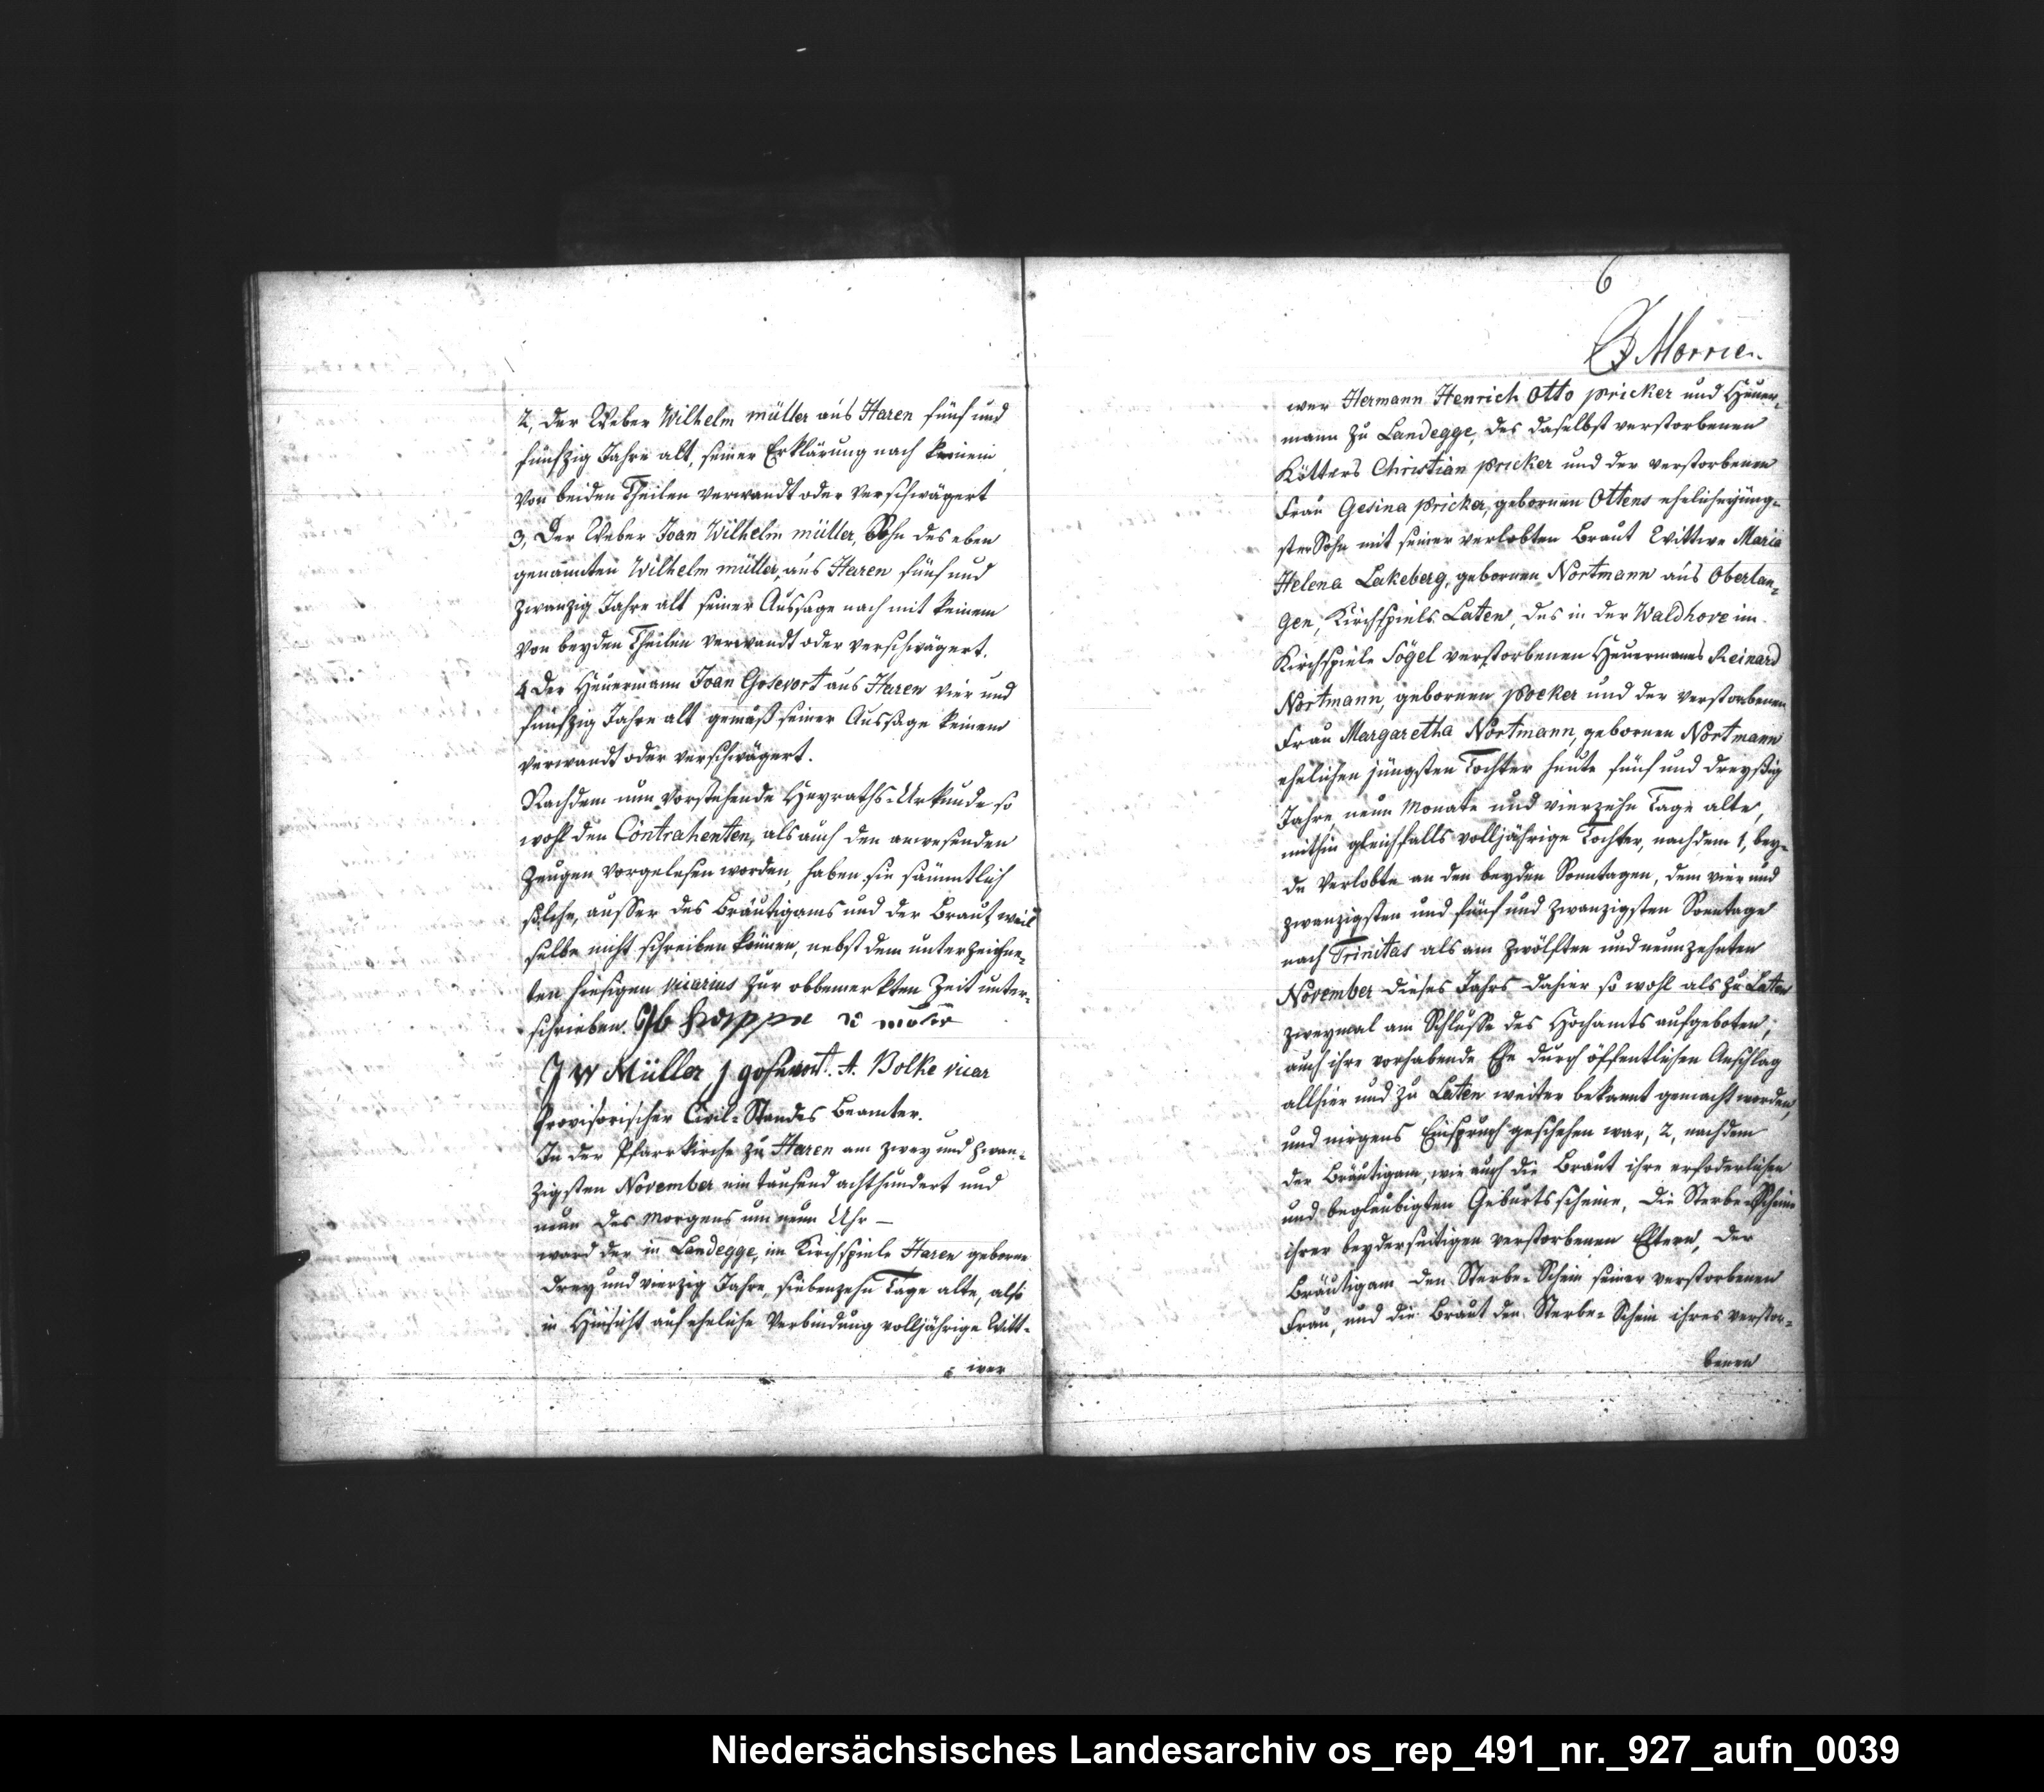 2, der Weber Wilhelm müller aus Haren fünf und
fünfzig Jahre alt, seiner Erklärung nach keinem
von beiden Theilen verwandt oder verschwägert
3, Der Weber Joan Wilhelm müller, Sohn des eben
genannten Wilhelm müller, aus Haren fünf und
zwanzig Jahre alt seiner Aussage nach mit keinem
von beyden Theilen verwandt oder verschwägert.
4 Der Heuermann Joan Gosevort aus Haren vier und
fünfzig Jahre alt gemäß seiner Aussage keinem
verwandt oder verschwägert.
Nachdem nun vorstehende Heyraths-Urkunde so
wohl den Contrahenten, als auch den anwesenden
Zeugen vorgelesen worden, haben sie sämmtlich
solche, ausser des Bräutigams und der Braut, weil
selbe nicht schreiben können, nebst dem unterzeichne-
ten hiesigen vicarius zur obbemerkten Zeit unter-
schrieben.
J W Müller J gosevort. A. Bolke vicar
Provisorischer Civil-Standes Beamter.
In der Pfarrkirche zu Haren am zwey und zwan-
zigsten November ein tausend achthundert und
neun des Morgens um neun Uhr –
ward der in Landegge, im Kirchspiele Haren geborne
drey und vierzig Jahre, siebenzehn Tage alte, also
in Hinsicht auf eheliche Verbindung volljährige Witt-
wer
6
Morrien
wer Hermann Henrich Otto pricker und Heuer-
mann zu Landegge, des daselbst verstorbenen
Kötters Christian pricker und der verstorbenen
Frau Gesina pricker, gebornen Ottens ehelicher jüng-
ster Sohn mit seiner verlobten Braut Wittwe Maria
Helena Lakeberg, gebornen Nortmann aus Oberlan-
gen, Kirchspiels Laten, des in der Waldhove im
Kirchspiele Sögel verstorbenen Heuermanns Reinard
Nortmann, gebornen pocker und der verstorbenen
Frau Margaretha Nortmann, gebornen Nortmann
ehelichen jüngsten Tochter heute fünf und dreyßig
Jahre neun Monate und vierzehn Tage alte,
mithin gleichfalls volljährige Tochter, nachdem 1, bey-
de Verlobte an den beyden Sonntagen, dem vier und
zwanzigsten und fünf und zwanzigsten Sonntage
nach Trinitas als am zwölften und neunzehnten
November dieses Jahrs dahier so wohl als zu Laten
zweymal am Schlusse des Hochamts aufgeboten,
auch ihre vorhabende Ehe durch öffentlichen Anschlag
allhier und zu Laten weiter bekannt gemacht worden,
und nirgens Einspruch geschehen war, 2, nachdem
der Bräutigam, wie auch die Braut ihre erfoderlichen
und beglaubigten Geburtsscheine, die Sterbe-Scheine
ihrer beyderseitigen verstorbenen Eltern, der
Bräutigam den Sterbe-Schein seiner verstorbenen
Frau, und die Braut den Sterbe-Schein ihres verstor-
benen
Niedersächsisches Landesarchiv os_rep_491_nr._927_aufn_0039